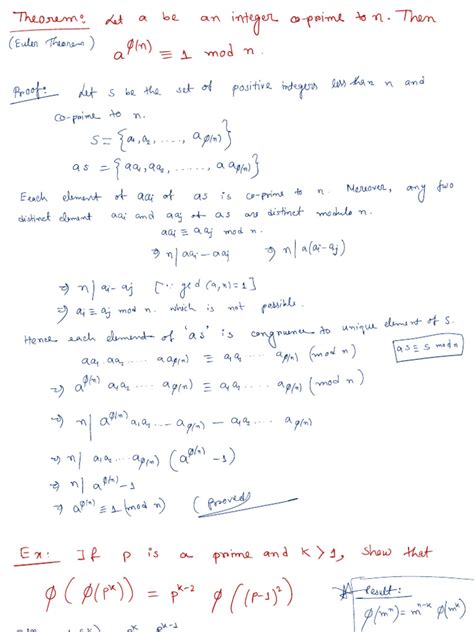 Theorem: Let a be an integer co-prime to n. Then
(Euler Theorem) a^φ(n) ≡ 1 mod n.
Proof: Let S be the set of positive integers less than n and
co-prime to n.
S = {a₁, a₂, ....., a_φ(n)}
aS = {aa₁, aa₂, ......, a a_φ(n)}
Each element of aaᵢ of aS is co-prime to n. Moreover, any two
distinct element aaᵢ and aaⱼ of aS are distinct modulo n.
aaᵢ ≡ aaⱼ mod n.
⇒ n | aaᵢ - aaⱼ ⇒ n | a(aᵢ-aⱼ)
⇒ n | aᵢ - aⱼ [∵ gcd (a,n)=1]
⇒ aᵢ ≡ aⱼ mod n. which is not possible.
Hence each element of 'aS' is congruence to unique element of S.
aa₁ aa₂ .... aa_φ(n) ≡ a₁a₂ .... a_φ(n) (mod n)
aS ≡ S mod n
⇒ a^φ(n) a₁a₂ .... a_φ(n) ≡ a₁a₂ .... a_φ(n) (mod n)
⇒ n | a^φ(n) a₁a₂ ... a_φ(n) - a₁a₂ .... a_φ(n)
⇒ n | a₁a₂ .... a_φ(n) (a^φ(n) - 1)
⇒ n | a^φ(n) - 1
⇒ a^φ(n) ≡ 1 (mod n) (proved)
Ex: If p is a prime and k > 1, show that
φ(φ(p^k)) = p^k-2 φ((p-1)²)
result:
φ(m^n) = m^n-k φ(m^k)